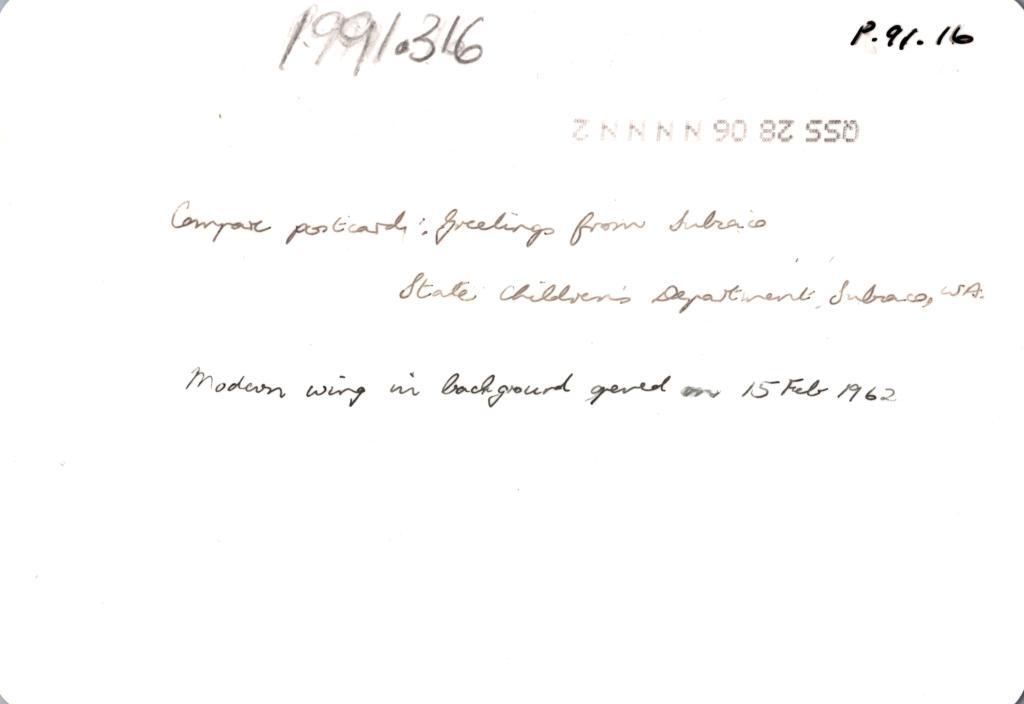 1991.316
P.91.16
QSS 28 06 N N N N 2
Compare postcards: Greetings from Subiaco
State Children's Department, Subiaco, WA.
Modern wing in background opened on 15 Feb 1962